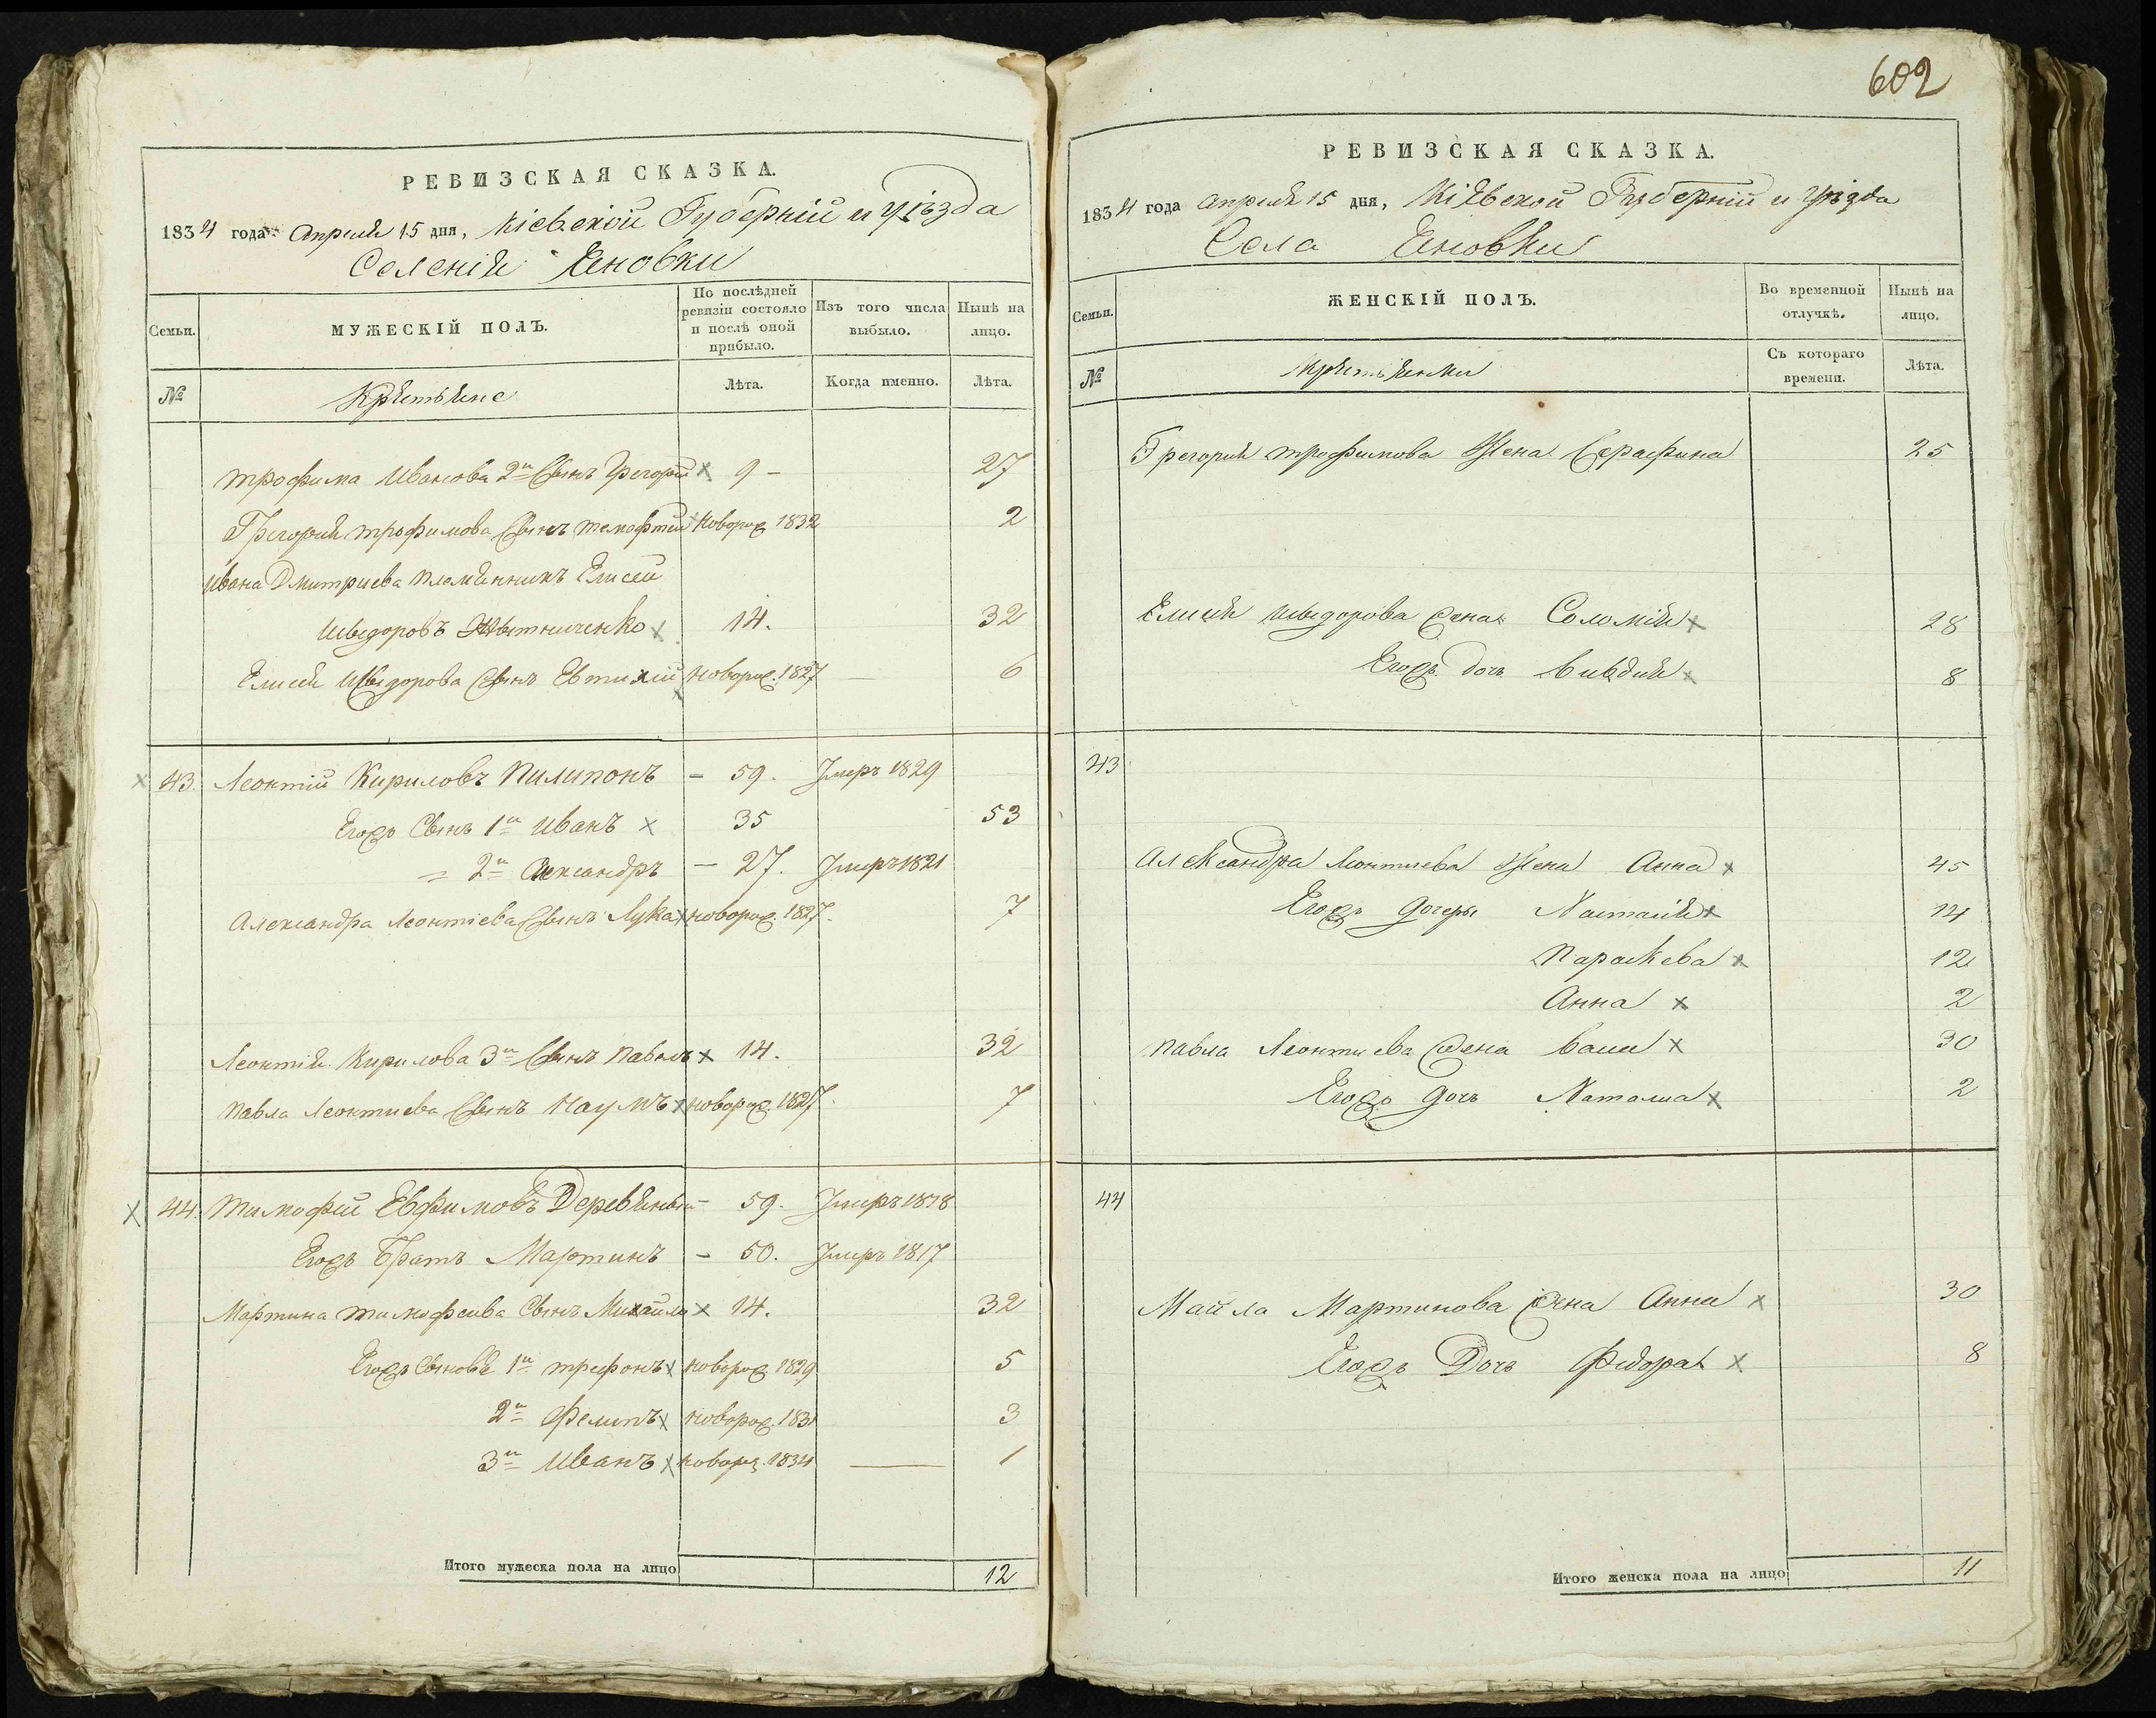 РЕВИЗСКАЯ СКАЗКА.
1834 года апреля 15 дня, Кіевской Губерніи и уѣзда
Селенія Яновки
Семьи.
МУЖЕСКІЙ ПОЛЪ.
По послѣдней ревизіи состояло и послѣ оной прибыло.
Изъ того числа выбыло.
Нынѣ на лицо.
№
Крестьяне
Лѣта.
Когда именно.
Лѣта.
Трофима Иванова 2й Сынъ Грегорій х 9 - 27
Грегорія Трофимова Сынъ новорож 1832 2
Ивана Дмитриева племянникъ Елисей
Швыдоровъ х 14. 32
Елисея Швыдорова Сынъ Евтихій х новорож. 1827 6
х 43. Леонтій Кириловъ Пилипонъ - 59. Умеръ 1829
Егожъ Сынъ 1й Иванъ х 35 53
= 2й Александръ - 27. Умеръ 1821
Александра Леонтіева Сынъ Лука х новорож. 1827. 7
Леонтія Кирилова 3й Сынъ Павелъ х 14. 32
Павла Леонтиева Сынъ Наумъ х новорож. 1827. 7
х 44. Тимофей Евфимовъ - 59. Умеръ 1818
Егожъ Братъ Мартинъ - 50. Умеръ 1817
Мартина Тимофеива Сынъ Михайла х 14. 32
Егожъ Сыновья 1й Трифонъ х новорож 1829 5
2й Фелипъ х новорож. 1831 3
3й Иванъ х 1834 1
Итого мужеска пола на лицо 12
602
РЕВИЗСКАЯ СКАЗКА.
1834 года апреля 15 дня, Кіевской Губерніи и уѣзда
Села Яновки
Семьи.
ЖЕНСКІЙ ПОЛЪ.
Во временной отлучкѣ.
Нынѣ на лицо.
№
Крестьянки
Съ котораго времени.
Лѣта.
Грегорія Трофимова Жена Серафина 25
Елисея Швыдорова Жена Соломія х 28
Егожъ дочь х 8
43
Александра Леонтиева Жена Анна х 45
Егожъ дочеры Настасія х 14
Параскева х 12
Анна х 2
Павла Леонтиева Жена х 30
Егожъ дочь Наталиа х 2
44
Майла Мартинова Жена Анна х 30
Егожъ Дочь Федора х 8
Итого женска пола на лицо 11